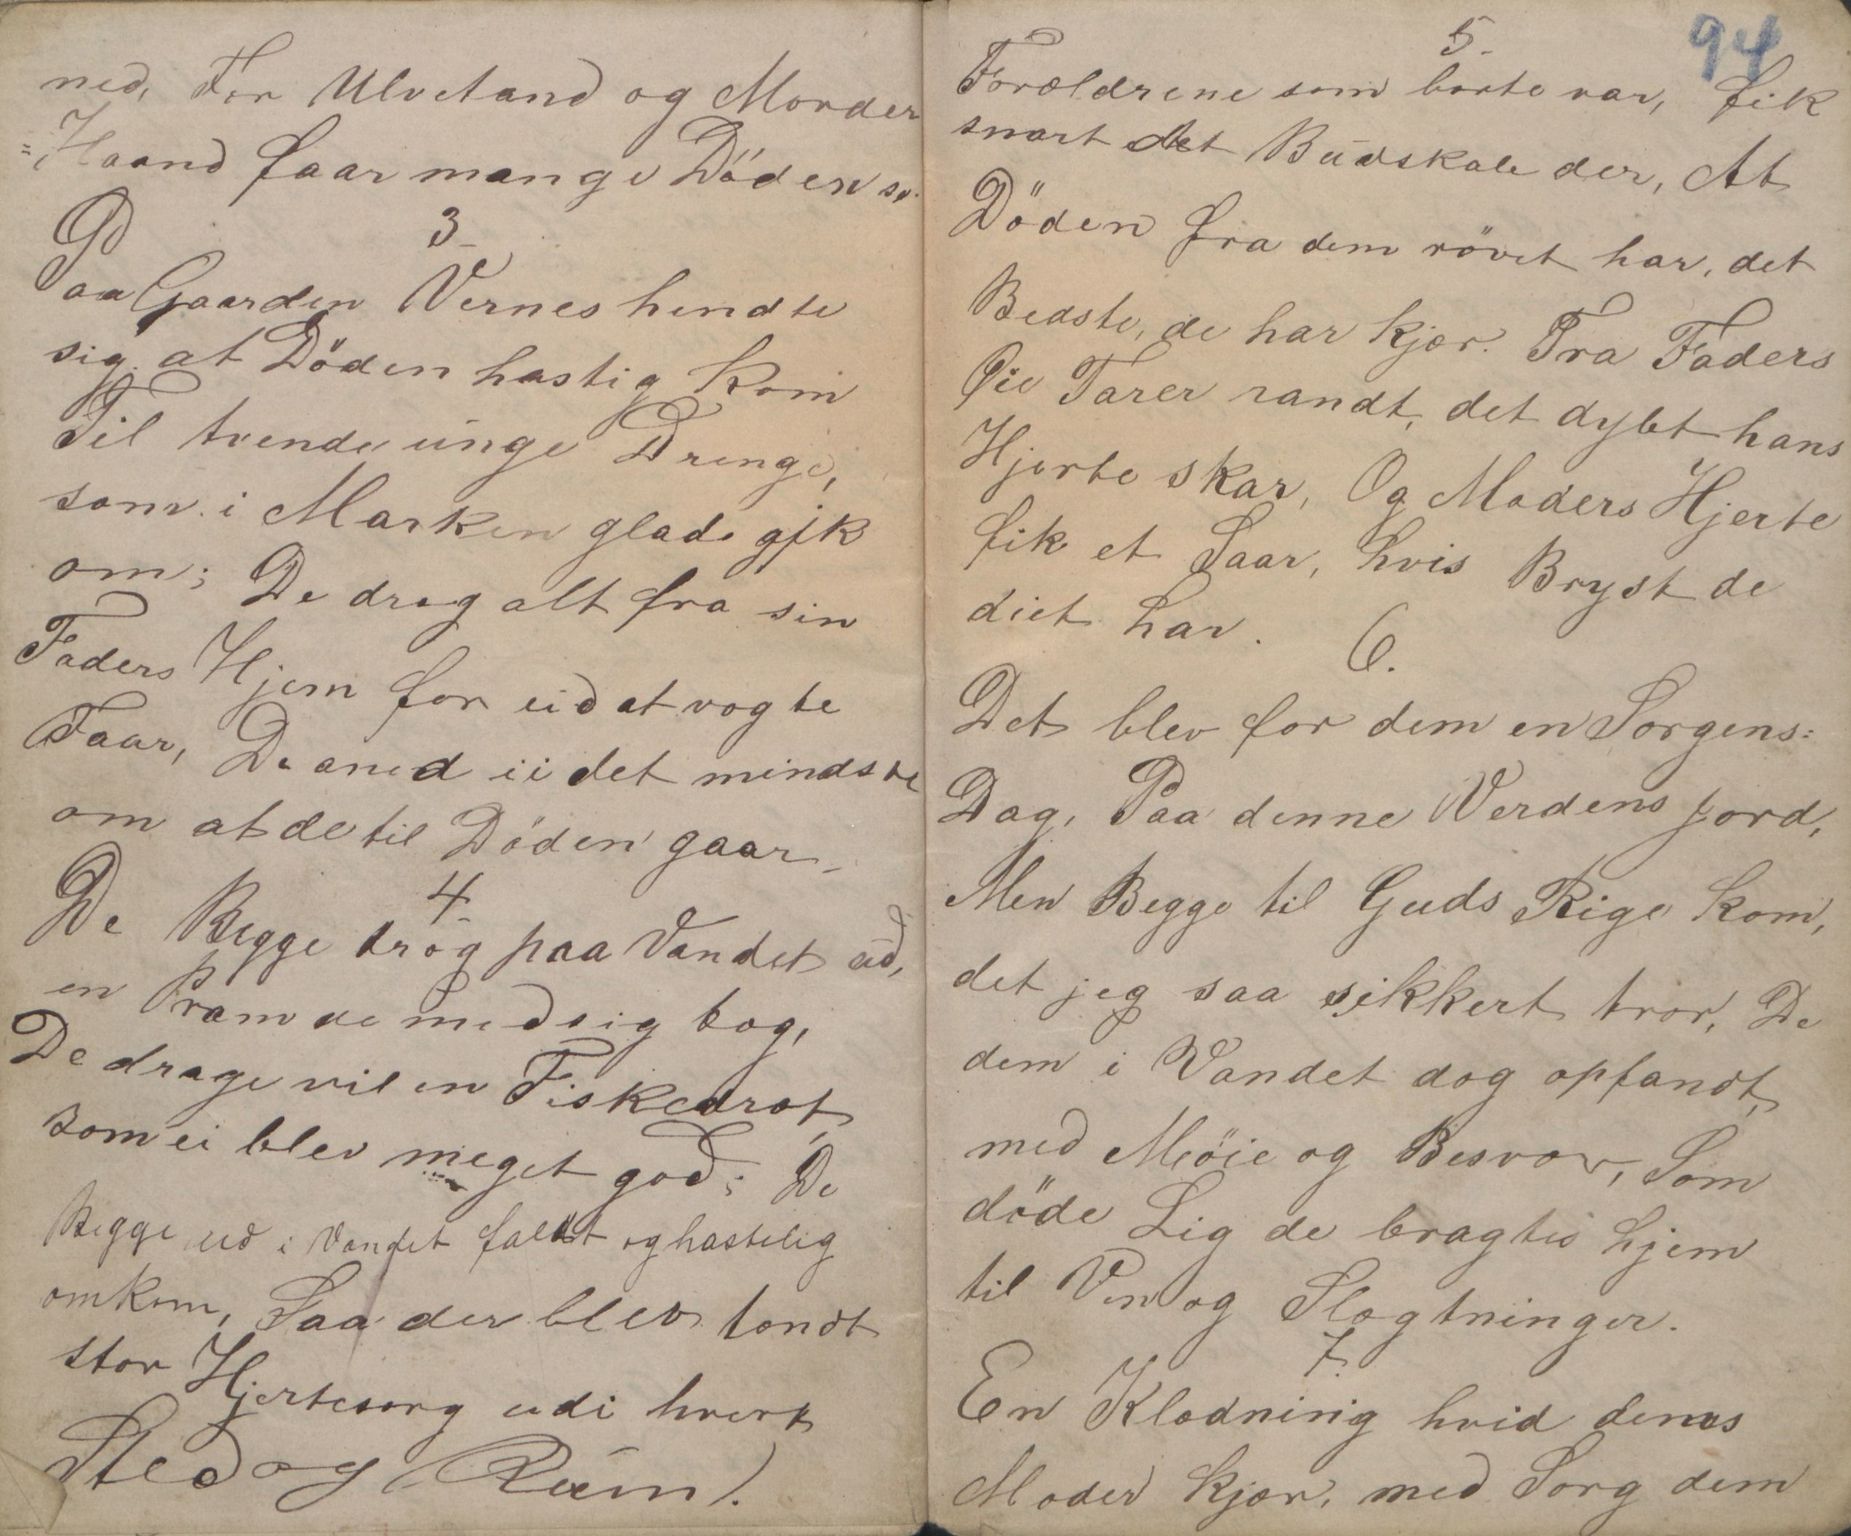 ned, For Ulvetand og Morder
=Haand faar mange Döden se.
3
Paa Gaarden Vernes hendte
sig, at Döden hastig kom
Til tvende unge Drenge,
som i Marken glade gik
om; De drog alt fra sin
Faders Hjem for ud at vogte
Faar, De aned ii det mindste
om at de til Döden gaar
4
De Begge drog paa Vandet ud,
en Pram de med sig tog,
De drage vil en Fiskedrot,
som ei blev meget god; De
Begge ud i Vandet faldt og hastelig
omkom, Saa der blev tendt
stor Hjertesorg udi hvert
Sted og Rum.
94
5
Forældrene som borte var, fik
snart det Budskab der, At
Döden fra dem rövet har, det
Bedste, de har kjær. Fra Faders
Öie Tarer randt, det dybt hans
Hjerte skar, Og Moders Hjerte
fik et Saar, hvis Bryst de
diet har.
6.
Det blev for dem en Sorgens=
Dag, Paa denne Verdens Jord,
Men Begge til Guds Rige kom,
det jeg saa sikkert tror, De
dem i Vandet dog opfandt,
med Möie og Besvær, Som
döde Lig de bragtes hjem
til Ven og Slægtninger.
7
En Klædning hvid deres
Moder kjær, med Sorg dem